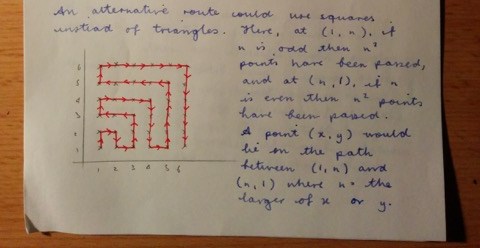 An alternative route could use squares
instiad of triangles. Here, at (1, n), if
n is odd then n²
points have been passed,
and at (n, 1), if n
is even then n² points
have been passed.
A point (x, y) would
lie on the path
between (1, n) and
(n, 1) where n = the
larger of x or y.
6
5
4
3
2
1
1 2 3 4 5 6